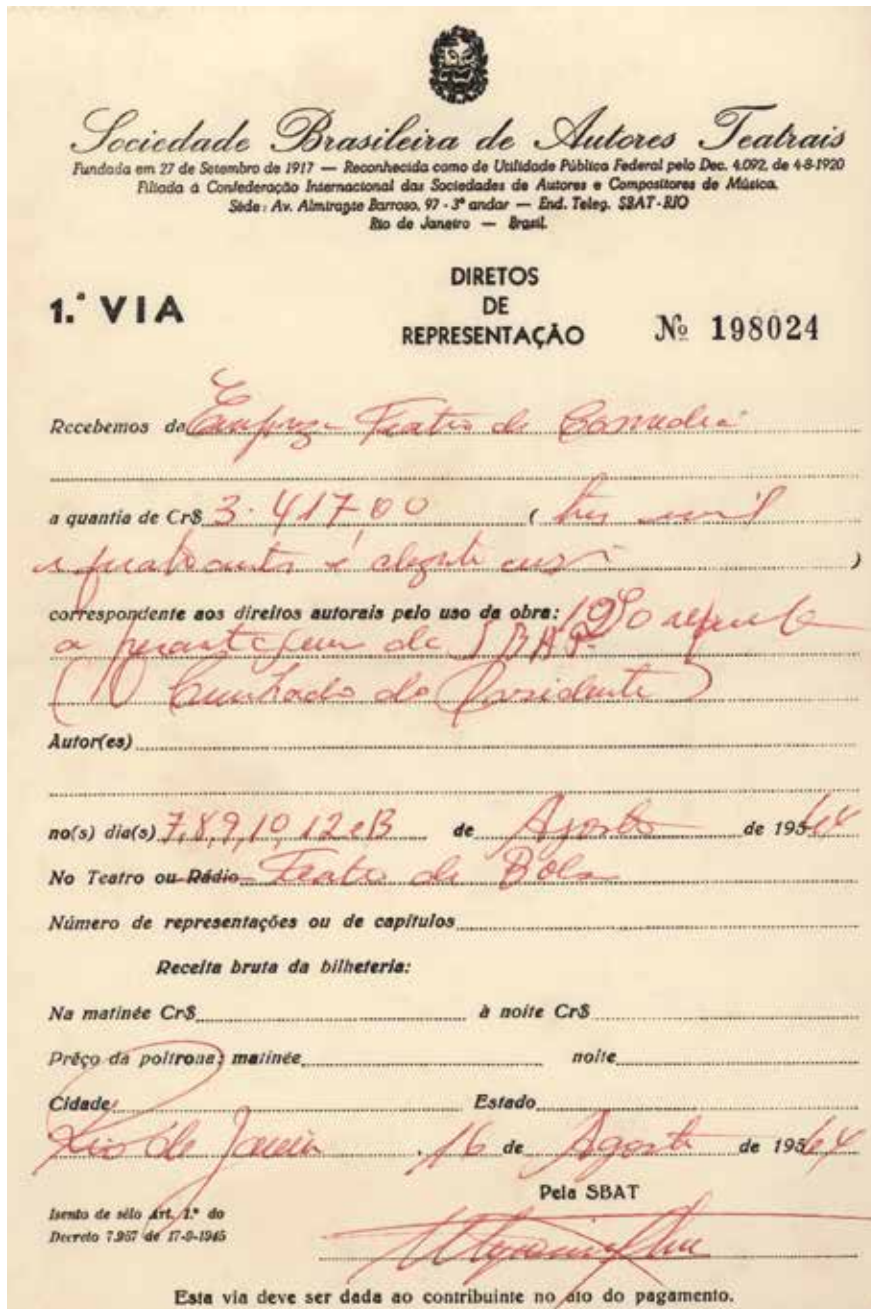 Sociedade Brasileira de Autores Teatrais
Fundada em 27 de Setembro de 1917 — Reconhecida como de Utilidade Pública Federal pelo Dec. 4.092, de 4-8-1920
Filiada á Confederação Internacional das Sociedades de Autores e Compositores de Música.
Séde: Av. Almirante Barroso, 97 - 3º andar — End. Teleg. SBAT-RIO
Rio de Janeiro — Brasil.
DIRETOS
1.ª VIA DE Nº 198024
REPRESENTAÇÃO
Recebemos da Teatro de Comedia
a quantia de Cr$ 3.417,00 ( tres mil
)
correspondente aos direitos autorais pelo uso da obra:
a de SBAT
(O Cunhado do Presidente)
Autor(es)
no(s) dia(s) 7,8,9,10,12 e 13 de Agosto de 195 64
No Teatro ou Rádio Teatro de Bolso
Número de representações ou de capítulos
Receita bruta da bilheteria:
Na matinée Cr$ à noite Cr$
Prêço da poltrona: matinée noite
Cidade Estado
Rio de Janeiro, 16 de Agosto de 195 64
Pela SBAT
Isento de sêlo Art. 1.º do
Decreto 7.957 de 17-9-1945
Esta via deve ser dada ao contribuinte no ato do pagamento.